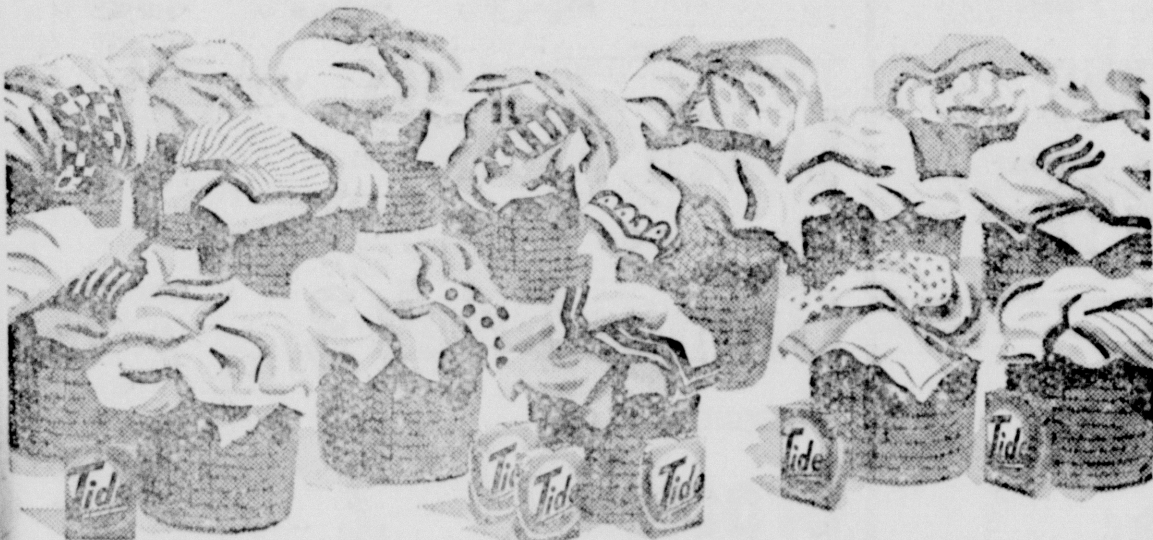 Tide
Tide
Tide
Tide
Tide
Tide